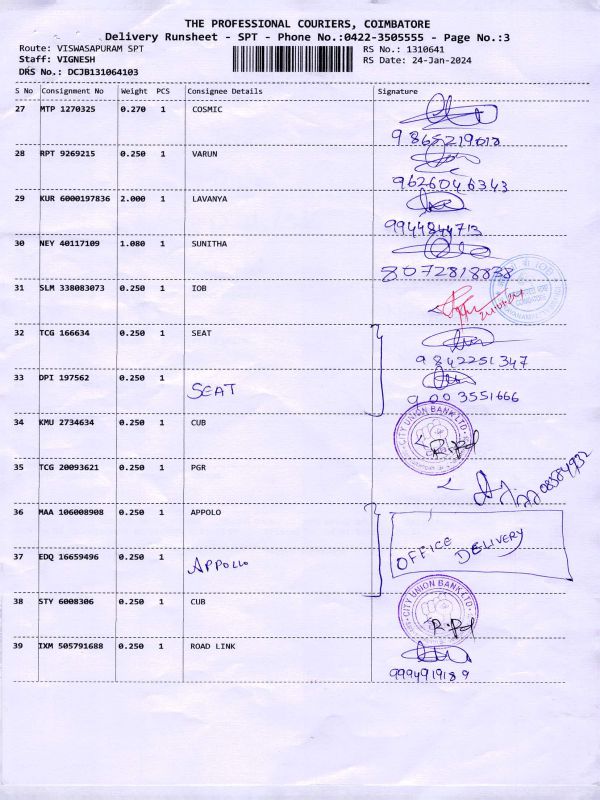 THE PROFESSIONAL COURIERS, COIMBATORE
Delivery Runsheet - SPT - Phone No.:0422-3505555 - Page No.:3
Route: VISWASAPURAM SPT
RS No.: 1310641
Staff: VIGNESH
RS Date: 24-Jan-2024
DRS No.: DCJB131064103
S No Consignment No Weight PCS Consignee Details Signature
27 MTP 1270325 0.270 1 COSMIC
9865219018
28 RPT 9269215 0.250 1 VARUN
9626046343
29 KUR 6000197836 2.000 1 LAVANYA
9944844713
30 NEY 40117109 1.080 1 SUNITHA
8072818838
31 SLM 338083073 0.250 1 IOB
32 TCG 166634 0.250 1 SEAT
9842251347
33 DPI 197562 0.250 1 SEAT
9003551666
34 KMU 2734634 0.250 1 CUB
CITY UNION BANK LTD
35 TCG 20093621 0.250 1 PGR
36 MAA 106008908 0.250 1 APPOLO
OFFICE DELIVERY
37 EDQ 16659496 0.250 1 APPOLLO
38 STY 6008306 0.250 1 CUB
CITY UNION BANK LTD
39 IXM 505791688 0.250 1 ROAD LINK
9994919189